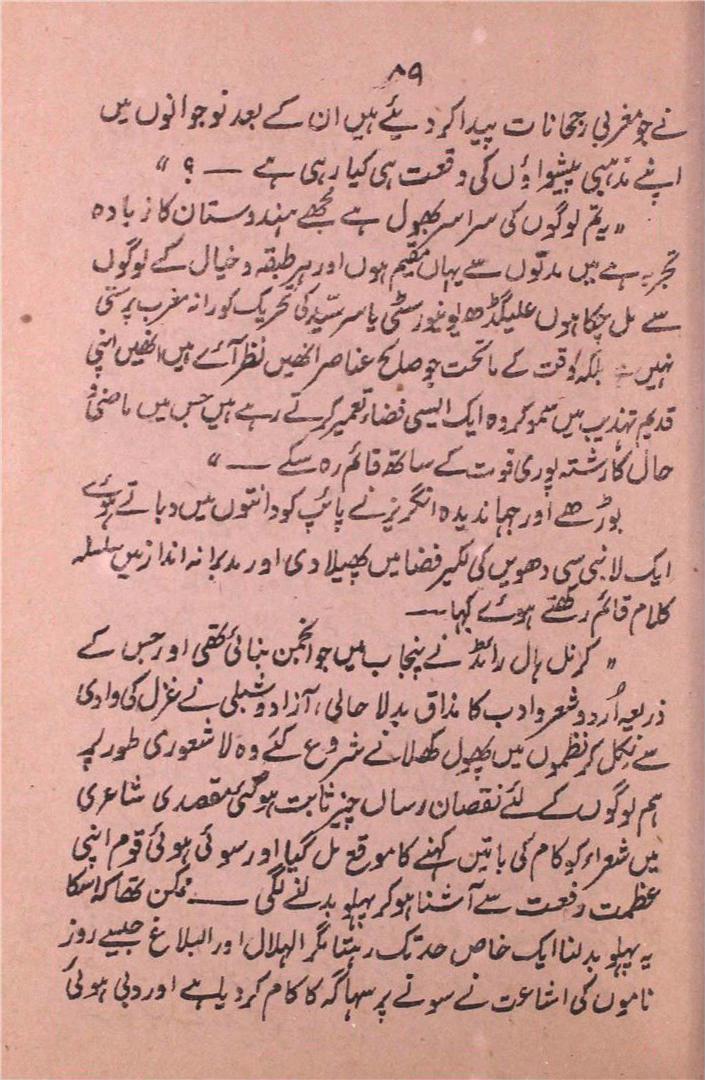 ۸۹
نے جو مغربی رجحانات پیدا کر دیئے ہیں ان کے بعد نوجوانوں میں
اپنے مذہبی پیشواؤں کی وقعت ہی کیا رہی ہے — ؟ "
" یہ تم لوگوں کی سراسر بھول ہے مجھے ہندوستان کا زیادہ
تجربہ ہے میں مدتوں سے یہاں مقیم ہوں اور ہر طبقہ و خیال کے لوگوں
سے مل چکا ہوں علیگڈھ یونیورسٹی یا سرسیّد کی تحریک کورانہ مغرب پرستی
نہیں بلکہ وقت کے ماتحت جو صالح عناصر انھیں نظر آئے ہیں انھیں اپنی
قدیم تہذیب میں سمو کر وہ ایک ایسی فضاء تعمیر کرتے رہے ہیں جس میں ماضی و
حال کا رشتہ پوری قوت کے ساتھ قائم رہ سکے — "
بوڑھے اور جہاندیدہ انگریز نے پائپ کو دانتوں میں دباتے ہوئے
ایک لانبی سی دھویں کی لکیر فضا میں پھیلا دی اور مدبرانہ انداز میں سلسلہ
کلام قائم رکھتے ہوئے کہا —
" کرنل ہال رائڈ نے پنجاب میں جو انجمن بنائی تھی اور جس کے
ذریعہ اُردو شعر و ادب کا مذاق بدلا حالی، آزاد و شبلی نے غزل کی وادی
سے نکل کر نظموں میں پھول کھلانے شروع کئے وہ لا شعوری طور پر
ہم لوگوں کے لئے نقصان رساں چیز ثابت ہو گئی مقصدی شاعری
میں شعراء کو کام کی باتیں کہنے کا موقع مل گیا اور سوئی ہوئی قوم اپنی
عظمت رفعت سے آشنا ہو کر پہلو بدلنے لگی — ممکن تھا کہ اسکا
یہ پہلو بدلنا ایک خاص حد تک رہتا مگر الہلال اور البلاغ جیسے روز
ناموں کی اشاعت نے سونے پر سہاگہ کا کام کر دیا ہے اور دبی ہوئی